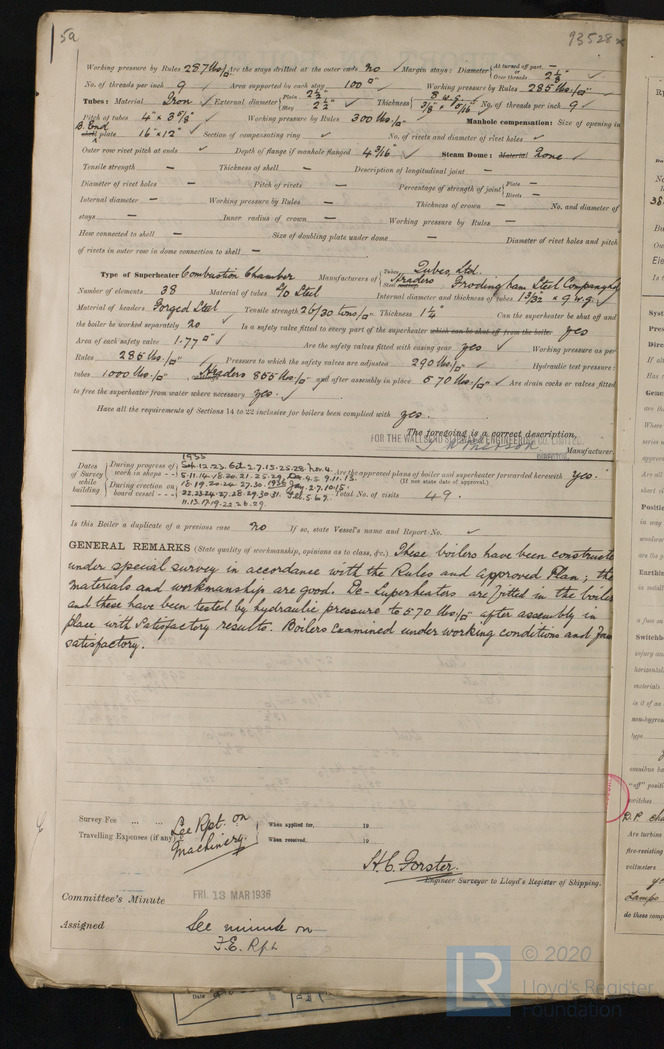 5a
93528
Working pressure by Rules 287 lbs/□" Are the stays drilled at the outer ends no Margin stays: Diameter { At turned off part, — or Over threads 2 1/8"
No. of threads per inch 9 Area supported by each stay 100 □" Working pressure by Rules 285 lbs/□"
Tubes: Material Iron External diameter { Plain 2 1/2" Stay 2 1/2" Thickness { 8 w.g. 3/8" + 5/16" No. of threads per inch 9
Pitch of tubes 4" × 3 5/8" Working pressure by Rules 300 lbs/□" Manhole compensation: Size of opening in
B. End
shell plate 16" × 12" Section of compensating ring ✓ No. of rivets and diameter of rivet holes ✓
Outer row rivet pitch at ends ✓ Depth of flange if manhole flanged 4 3/16" Steam Dome: Material None
Tensile strength — Thickness of shell — Description of longitudinal joint —
Diameter of rivet holes — Pitch of rivets — Percentage of strength of joint { Plate — Rivets —
Internal diameter — Working pressure by Rules — Thickness of crown — No. and diameter of
stays — Inner radius of crown — Working pressure by Rules —
How connected to shell — Size of doubling plate under dome — Diameter of rivet holes and pitch
of rivets in outer row in dome connection to shell —
Type of Superheater Combustion Chamber Manufacturers of { Tubes Tubes, Ltd. Headers Steel Frodingham Steel Company Ltd
Number of elements 38 Material of tubes S/D Steel Internal diameter and thickness of tubes 1 3/32 × 9 w.g.
Material of headers Forged Steel Tensile strength 26/30 tons/□" Thickness 1 1/4" Can the superheater be shut off and
the boiler be worked separately no Is a safety valve fitted to every part of the superheater which can be shut off from the boiler yes
Area of each safety valve 1.77 □" Are the safety valves fitted with easing gear yes Working pressure as per
Rules 285 lbs/□" Pressure to which the safety valves are adjusted 290 lbs/□" Hydraulic test pressure:
tubes 1000 lbs/□" Headers 855 lbs/□" and after assembly in place 570 lbs/□" Are drain cocks or valves fitted
to free the superheater from water where necessary yes.
Have all the requirements of Sections 14 to 22 inclusive for boilers been complied with yes.
The foregoing is a correct description,
FOR THE WALLSEND SLIPWAY & ENGINEERING CO. LIMITED.
DIRECTOR. Manufacturer.
Dates of Survey while building
During progress of work in shops - -
During erection on board vessel - - -
1935
Sep. 12.23. Oct. 2.7.15.25.28. Nov. 4.
5.11.14.18.20.21.25.29. Dec. 4.5.9.11.13.
18.19.20.24.27.30. 1936 Jan. 2.7.10.15.
22.23.24.27.28.29.30.31. Feb. 5.6.9.
11.13.17.19.22.26.29
Are the approved plans of boiler and superheater forwarded herewith yes.
(If not state date of approval.)
Total No. of visits 49.
Is this Boiler a duplicate of a previous case no If so, state Vessel's name and Report No. ✓
GENERAL REMARKS (State quality of workmanship, opinions as to class, &c.) These boilers have been constructe
under special survey in accordance with the Rules and approved Plan; the
materials and workmanship are good. De-Superheaters are fitted in the boiler
and these have been tested by hydraulic pressure to 570 lbs/□" after assembly in
place with satisfactory results. Boilers examined under working conditions and fou
satisfactory.
Survey Fee ... ... See Rpt. on
Travelling Expenses (if any) £ Machinery.
When applied for, 19
When received, 19
H.C. Forster.
Engineer Surveyor to Lloyd's Register of Shipping.
Committee's Minute FRI. 13 MAR 1936
Assigned See minute on
F.E. Rpt
© 2020
Lloyd's Register
Foundation